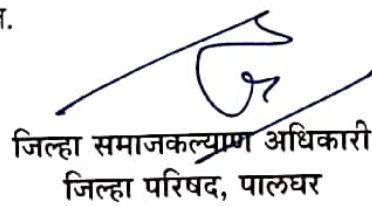 जिल्हा समाजकल्याण अधिकारी
जिल्हा परिषद, पालघर